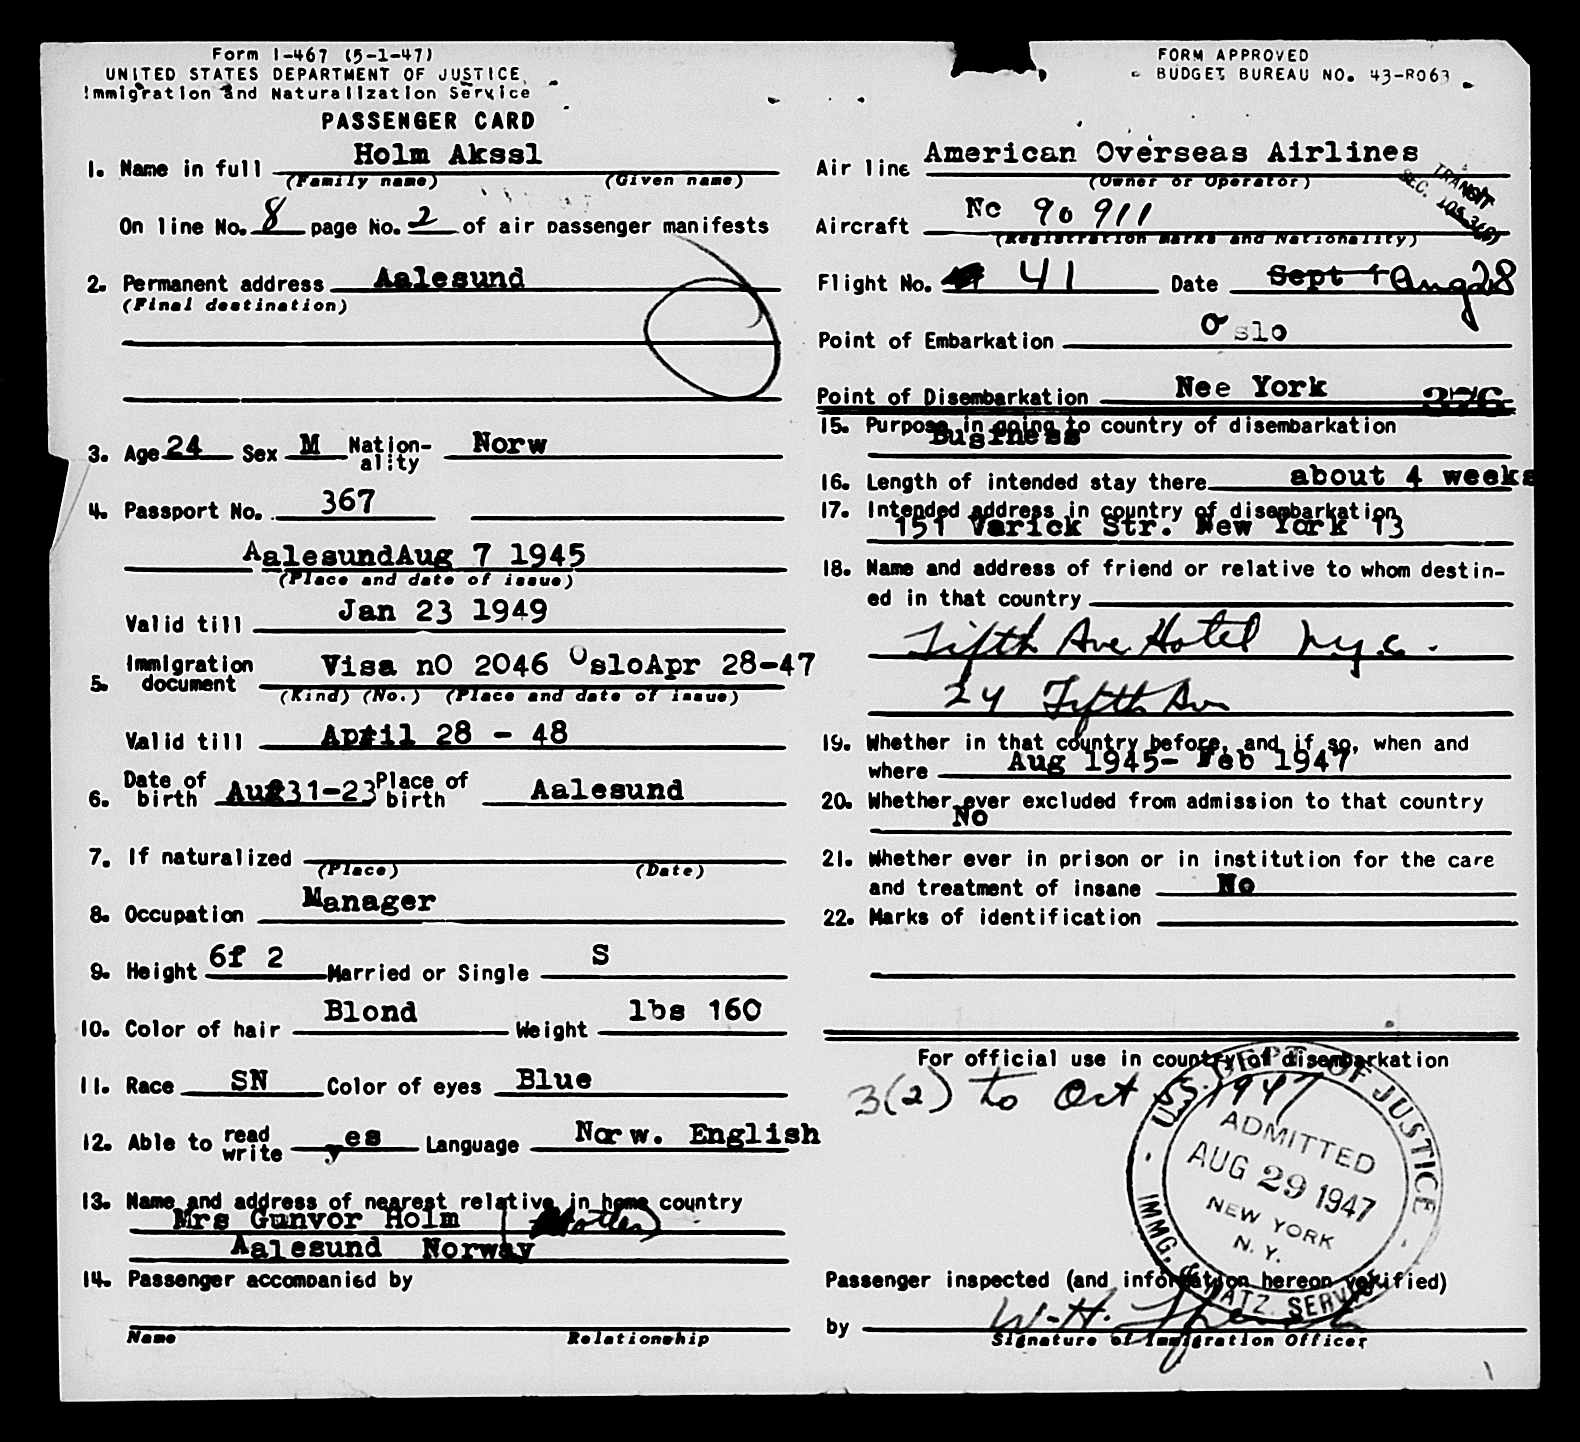 Form I-467 (5-1-47)
UNITED STATES DEPARTMENT OF JUSTICE
Immigration and Naturalization Service
PASSENGER CARD
FORM APPROVED
BUDGET BUREAU NO. 43-R063
1. Name in full Holm Akssl
(Family name) (Given name)
On line No. 8 page No. 2 of air passenger manifests
2. Permanent address Aalesund
(Final destination)
3. Age 24 Sex M Nation-ality Norw
4. Passport No. 367
AalesundAug 7 1945
(Place and date of issue)
Valid till Jan 23 1949
5. Immigration document Visa nO 2046 OsloApr 28-47
(Kind) (No.) (Place and date of issue)
Valid till April 28 - 48
6. Date of birth Aug31-23 Place of birth Aalesund
7. If naturalized
(Place) (Date)
8. Occupation Manager
9. Height 6f 2 Married or Single S
10. Color of hair Blond Weight lbs 160
11. Race SN Color of eyes Blue
12. Able to read write yes Language Norw. English
13. Name and address of nearest relative in home country
Mrs Gunvor Holm (Mother)
Aalesund Norway
14. Passenger accompanied by
Name Relationship
Air line American Overseas Airlines
(Owner or Operator)
TRANSIT
SEC.
Aircraft Nc 90911
(Registration marks and Nationality)
Flight No. 41 Date Sept 1 Aug 28
Point of Embarkation Oslo
Point of Disembarkation Nee York 376
15. Purpose in going to country of disembarkation
Business
16. Length of intended stay there about 4 weeks
17. Intended address in country of disembarkation
151 Varick Str. New York 13
18. Name and address of friend or relative to whom destin-
ed in that country
Fifth Ave Hotel N.y.c.
24 Fifth Av
19. Whether in that country before, and if so, when and
where Aug 1945- Feb 1947
20. Whether ever excluded from admission to that country
No
21. Whether ever in prison or in institution for the care
and treatment of insane No
22. Marks of identification
For official use in country of disembarkation
3(2) to Oct 5, 1947
U.S. DEPT. OF JUSTICE
ADMITTED
AUG 29 1947
NEW YORK
N. Y.
IMMG. & NATZ. SERVICE
Passenger inspected (and information hereon verified)
by W.H.
Signature of Immigration Officer